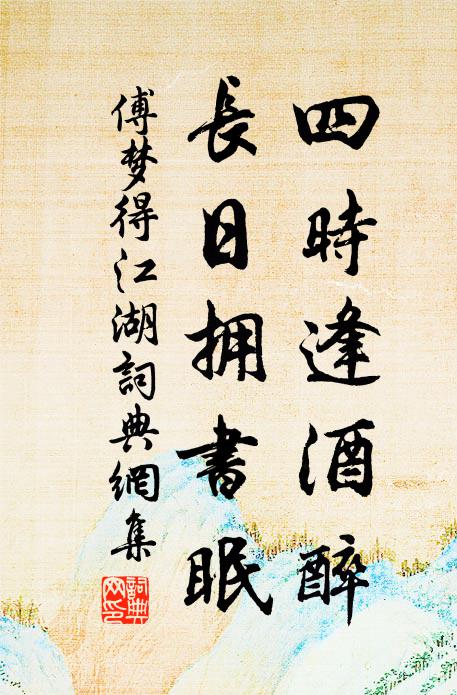 四時逢酒醉
長日拥書眠
傅梦得江湖詞典網集
詞典网印